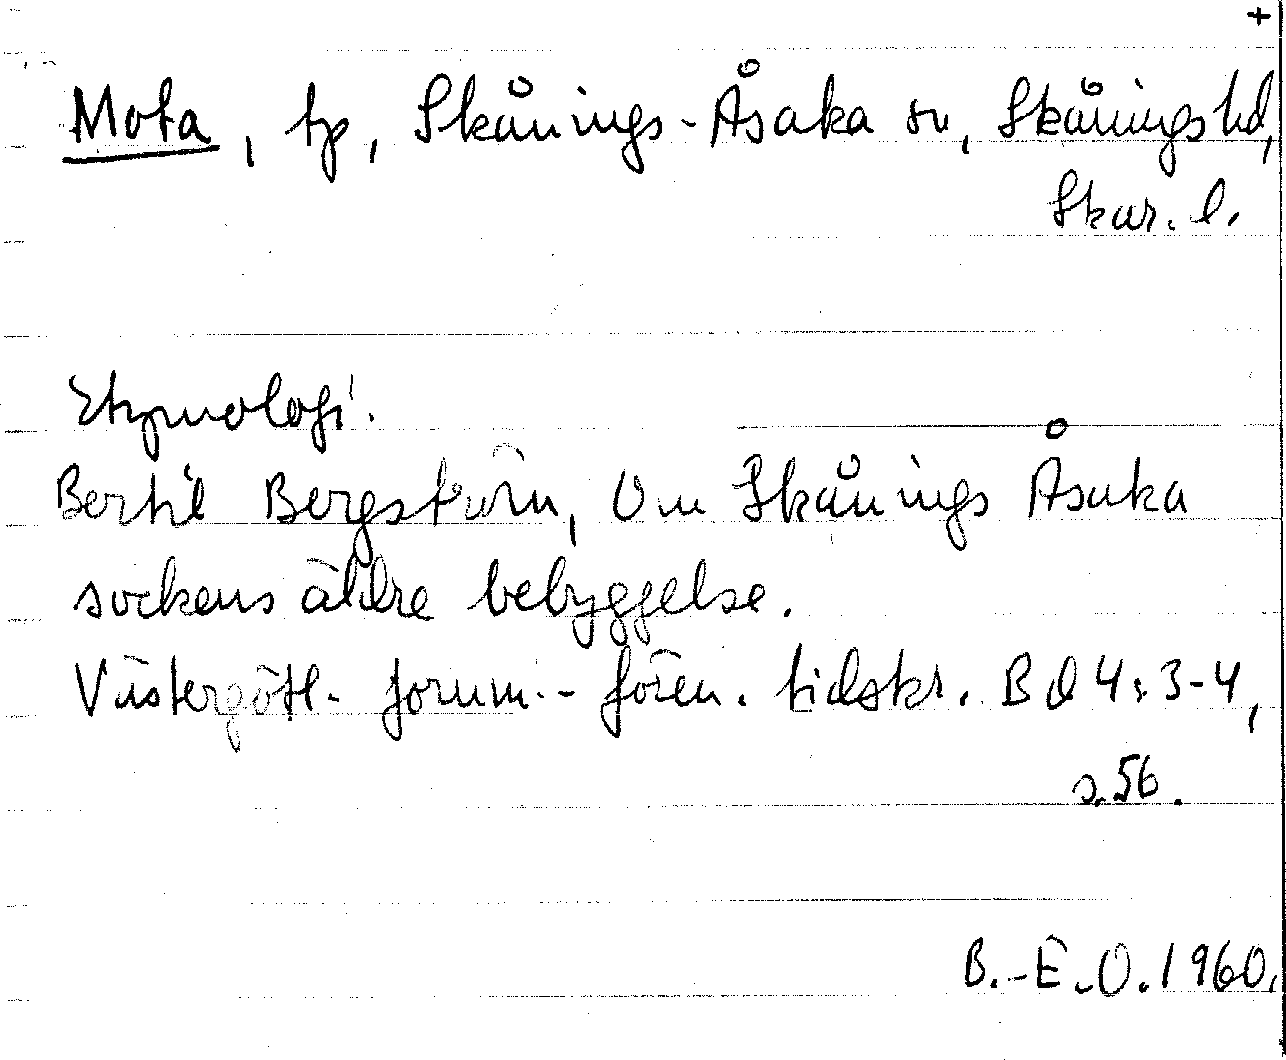 +
Mota, tp, Skånings-Åsaka sn, Skånings hd,
Skar. l.
Etymologi.
Bertil Bergström, Om Skånings Åsaka
sockens äldre bebyggelse.
Västergötl. fornm.- fören. tidskr. Bd 4:3-4,
s. 56.
B.-E.O. 1960.